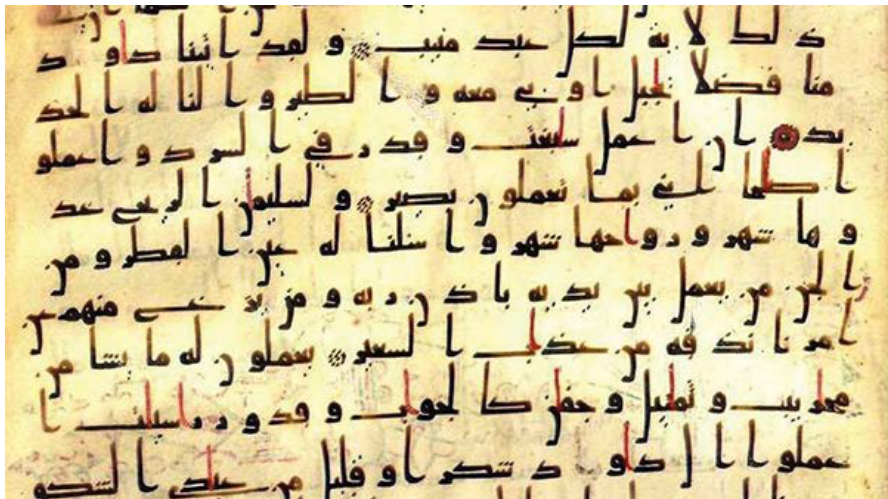 ذلك لاية لكل عبد منيب ولقد اتينا داود
منا فضلا يجبال اوبي معه والطير والنا له الحد
يد ان اعمل سبغت وقدر في السرد واعملو
ا صلحا اني بما تعملون بصير ولسليمن الريح غد
وها شهر ورواحها شهر واسلنا له عين القطر ومن
الجن من يعمل بين يديه باذن ربه ومن يزغ منهم عن
امرنا نذقه من عذاب السعير يعملون له ما يشا من
محاريب وتماثيل وجفان كالجواب وقدور راسيات ا
عملوا ال داود شكرا وقليل من عبادي الشكو